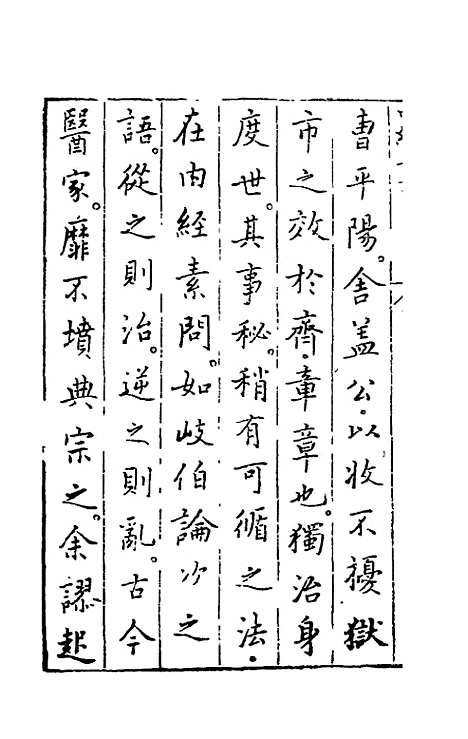 曹平陽。舍蓋公。以收不擾獄
市之效於齊。章章也。獨治身
度世。其事秘。稍有可循之法。
在内経素問。如岐伯論次之
語。從之則治。逆之則亂。古今
醫家。靡不墳典宗之。余謬起